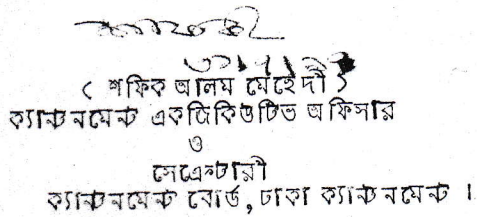 ( শফিক আলম মেহেদী )
ক্যান্টনমেন্ট একজিকিউটিভ অফিসার
ও
সেক্রেটারী
ক্যান্টনমেন্ট বোর্ড, ঢাকা ক্যান্টনমেন্ট ।